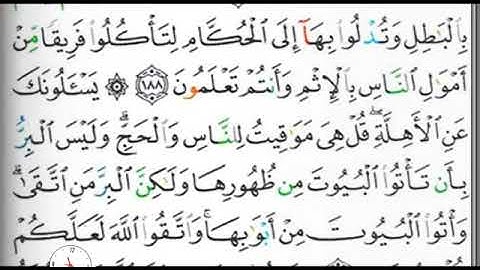 بِٱلْبَٰطِلِ وَتُدْلُوا۟ بِهَآ إِلَى ٱلْحُكَّامِ لِتَأْكُلُوا۟ فَرِيقًا مِّنْ
أَمْوَٰلِ ٱلنَّاسِ بِٱلْإِثْمِ وَأَنتُمْ تَعْلَمُونَ ١٨٨ ۞ يَسْـَٔلُونَكَ
عَنِ ٱلْأَهِلَّةِ ۖ قُلْ هِىَ مَوَٰقِيتُ لِلنَّاسِ وَٱلْحَجِّ ۗ وَلَيْسَ ٱلْبِرُّ
بِأَن تَأْتُوا۟ ٱلْبُيُوتَ مِن ظُهُورِهَا وَلَٰكِنَّ ٱلْبِرَّ مَنِ ٱتَّقَىٰ ۗ
وَأْتُوا۟ ٱلْبُيُوتَ مِنْ أَبْوَٰبِهَا ۚ وَٱتَّقُوا۟ ٱللَّهَ لَعَلَّكُمْ